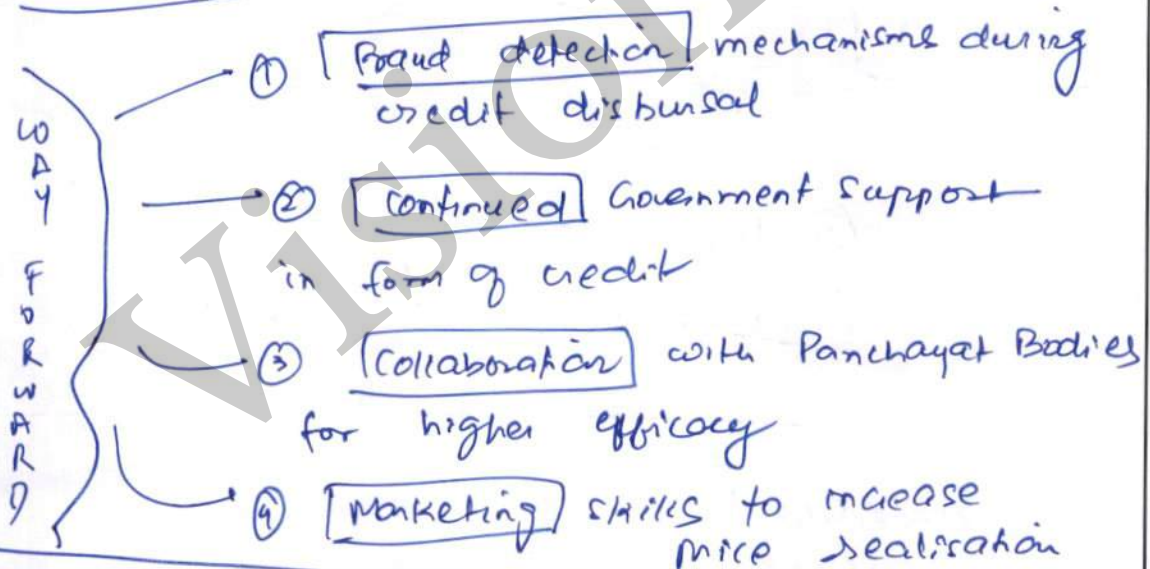 WAY FORWARD
① Fraud detection mechanisms during
credit disbursal
② Continued Government Support
in form of credit
③ Collaboration with Panchayat Bodies
for higher efficacy
④ Marketing skills to increase
price realisation
Vision